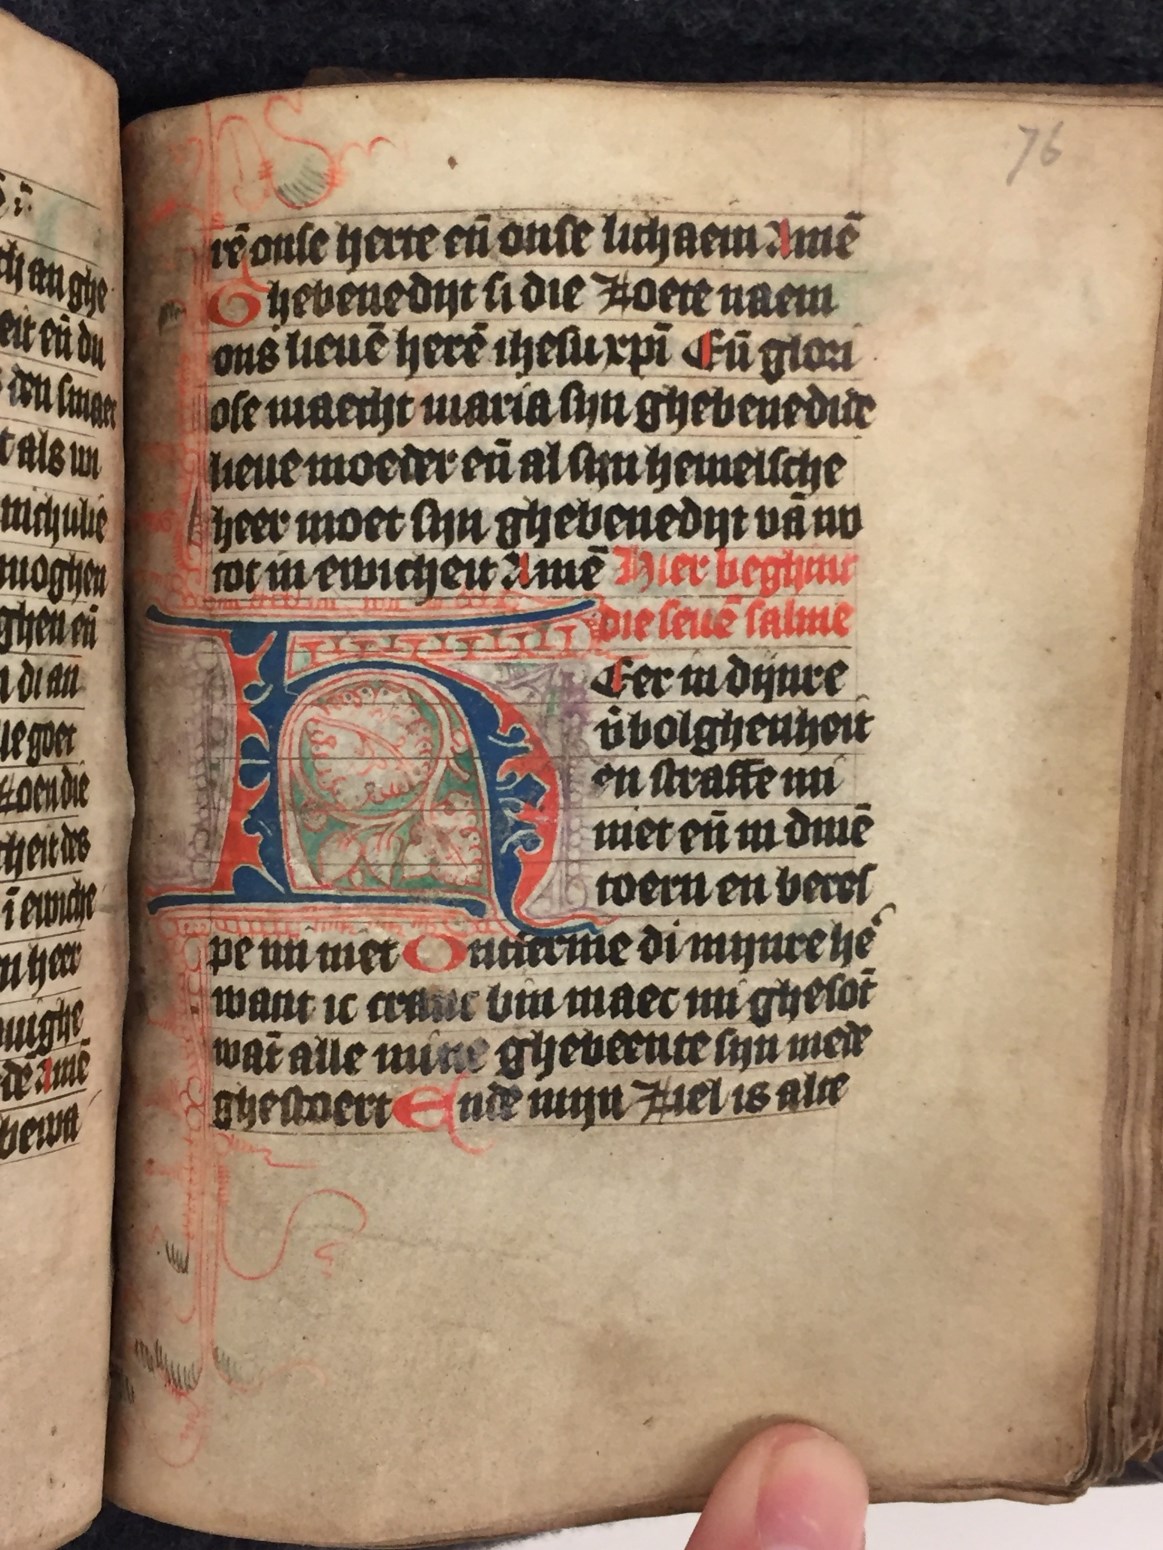 76
rē onse herte en̄ onse lichaem Amē
Ghebenedijt si die zoete naem
ons lieuē herē ihesu xpī En̄ glori
ose maecht maria sijn ghebenedide
lieue moeder en̄ al sijn hemelsche
heer moet sijn ghebenedijt vā nv
tot in ewicheit Amē Hier beghint
die seuē salme
HEer in dijnre
v̄bolghenheit
en straffe mi
niet en̄ in dinē
toern en beres
pe mi niet Ontferme di mijnre hē
want ic cranc bin maec mi ghesōt
wāt alle mine ghebeente sijn mede
ghestoert Ende mijn ziel is alte
ch an ghe
eit en̄ du
t als un
moghen
ghen en̄
n di an
ue goet
zoen die
cheit des
ī ewiche
n heer
uighe
dē Amē
bewa